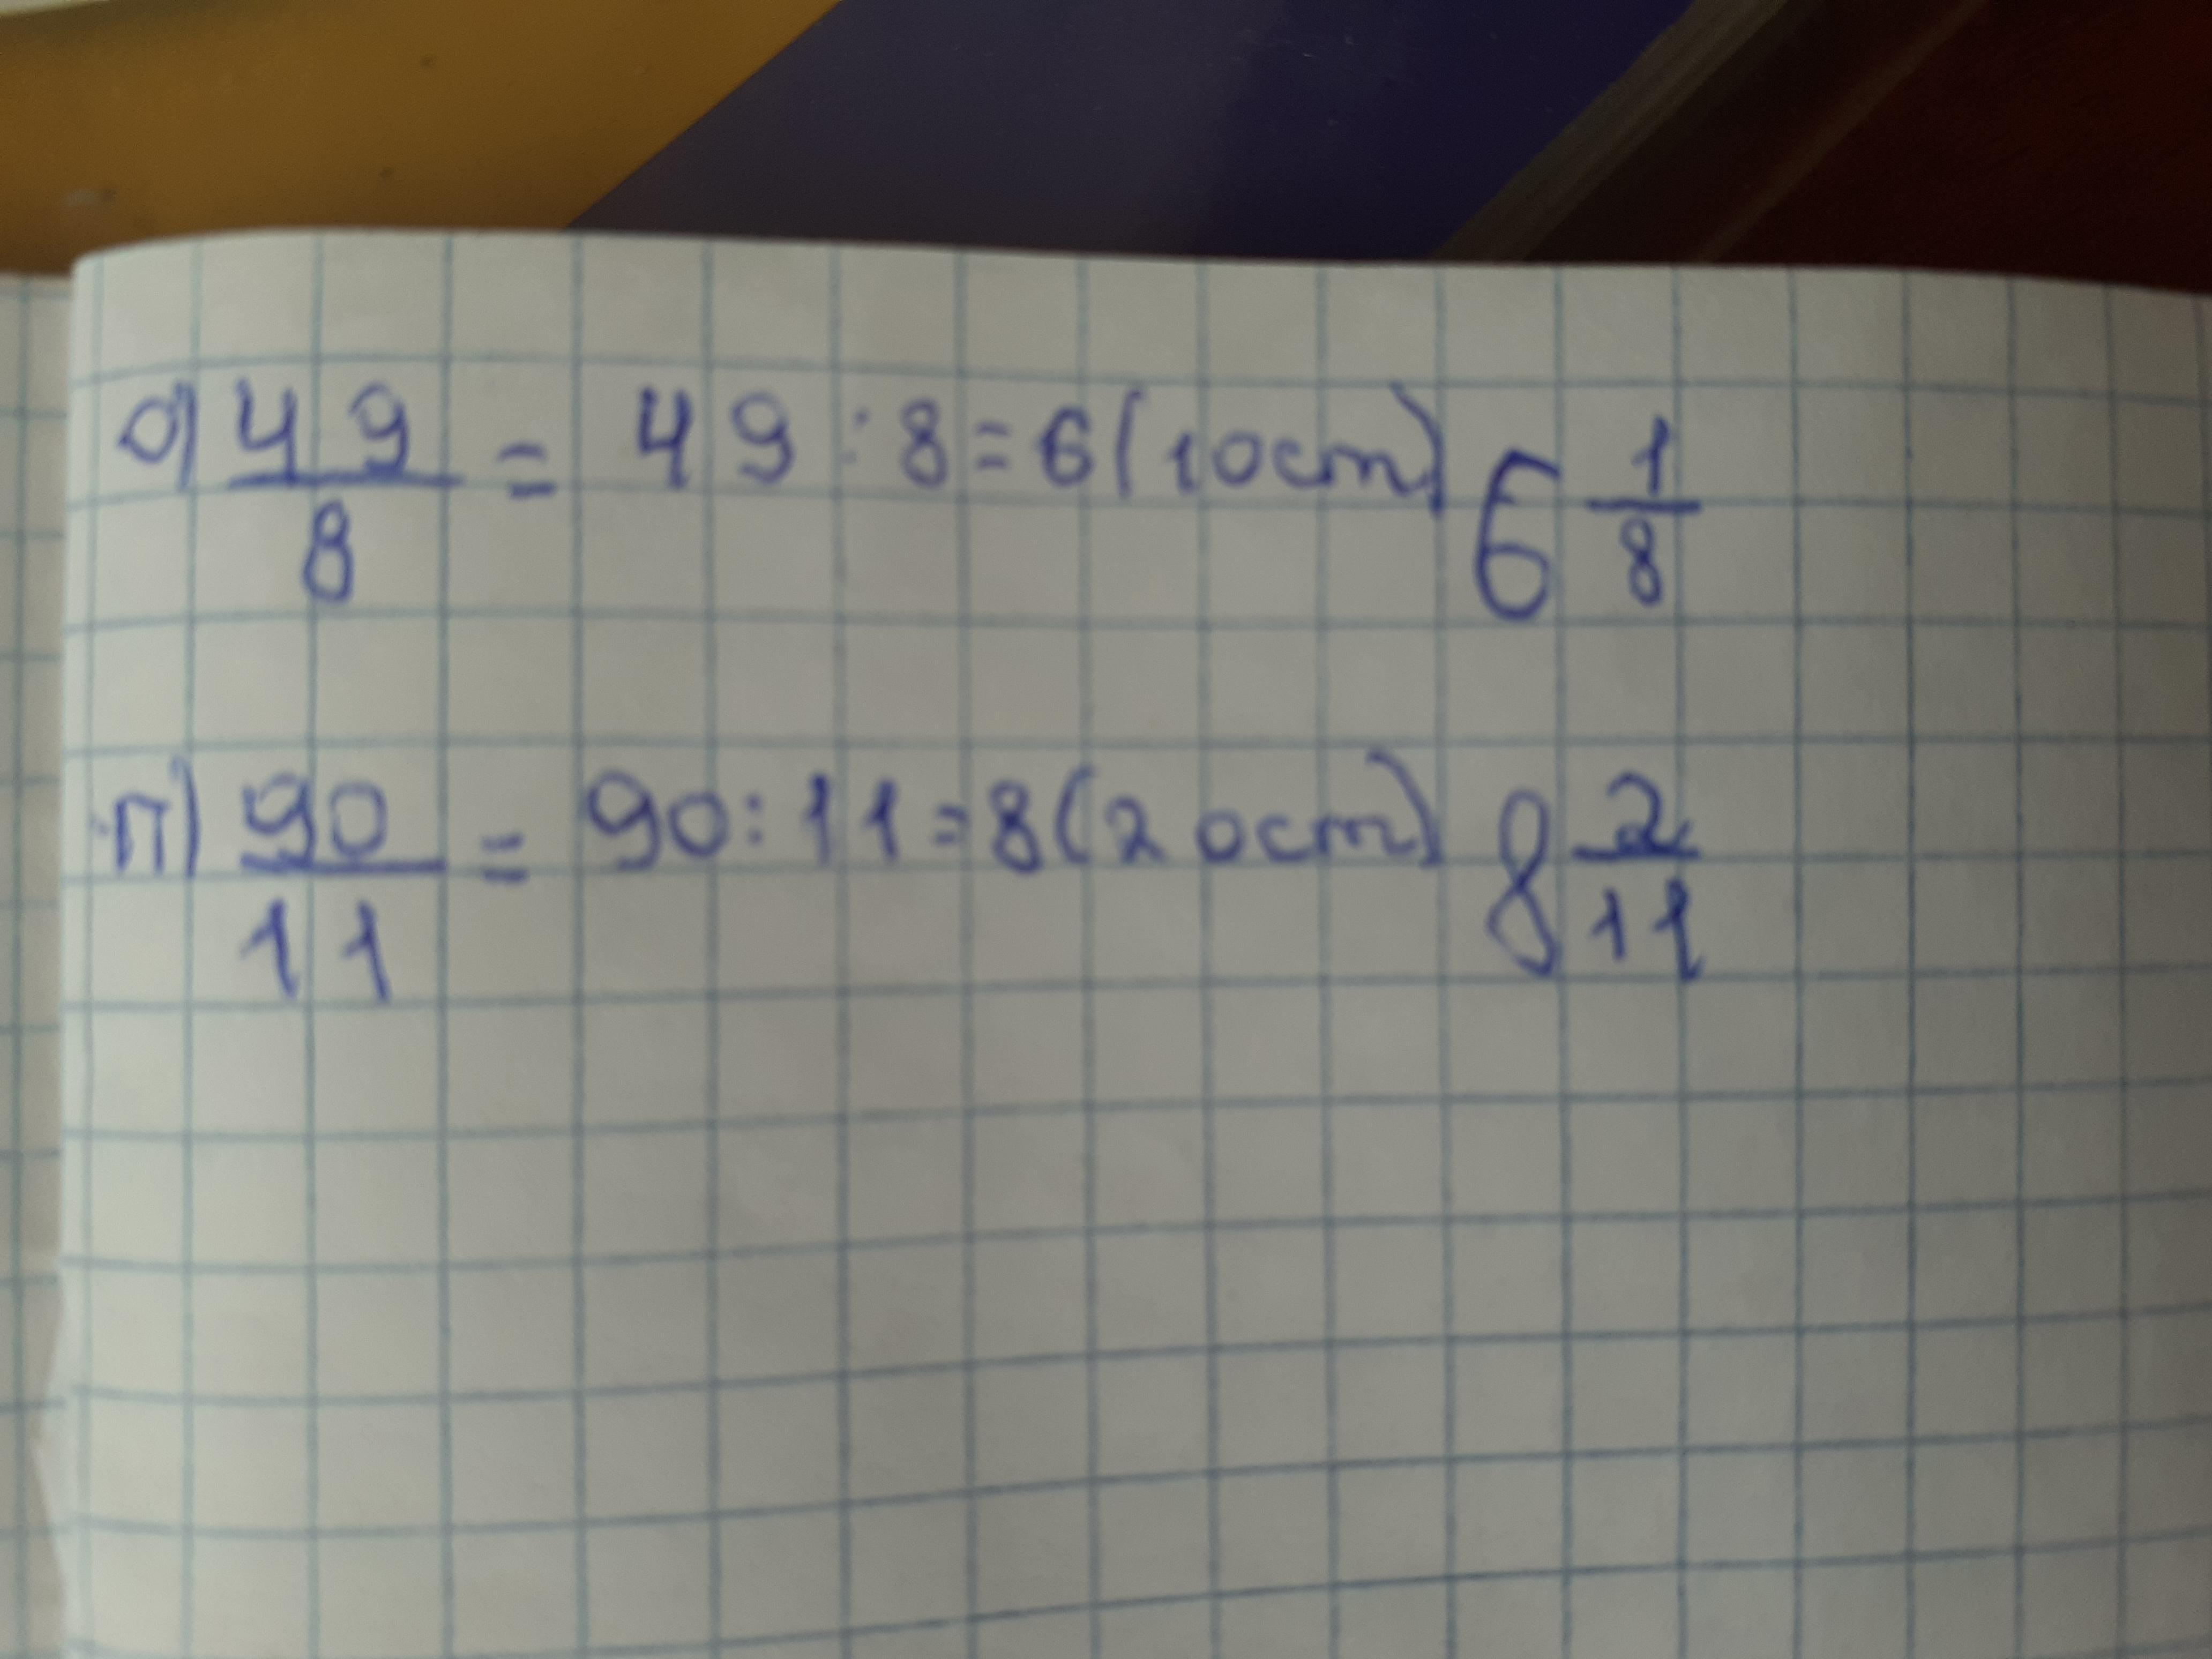 о) 49/8 = 49 : 8 = 6 (1 ост) 6 1/8
п) 90/11 = 90 : 11 = 8 (2 ост) 8 2/11